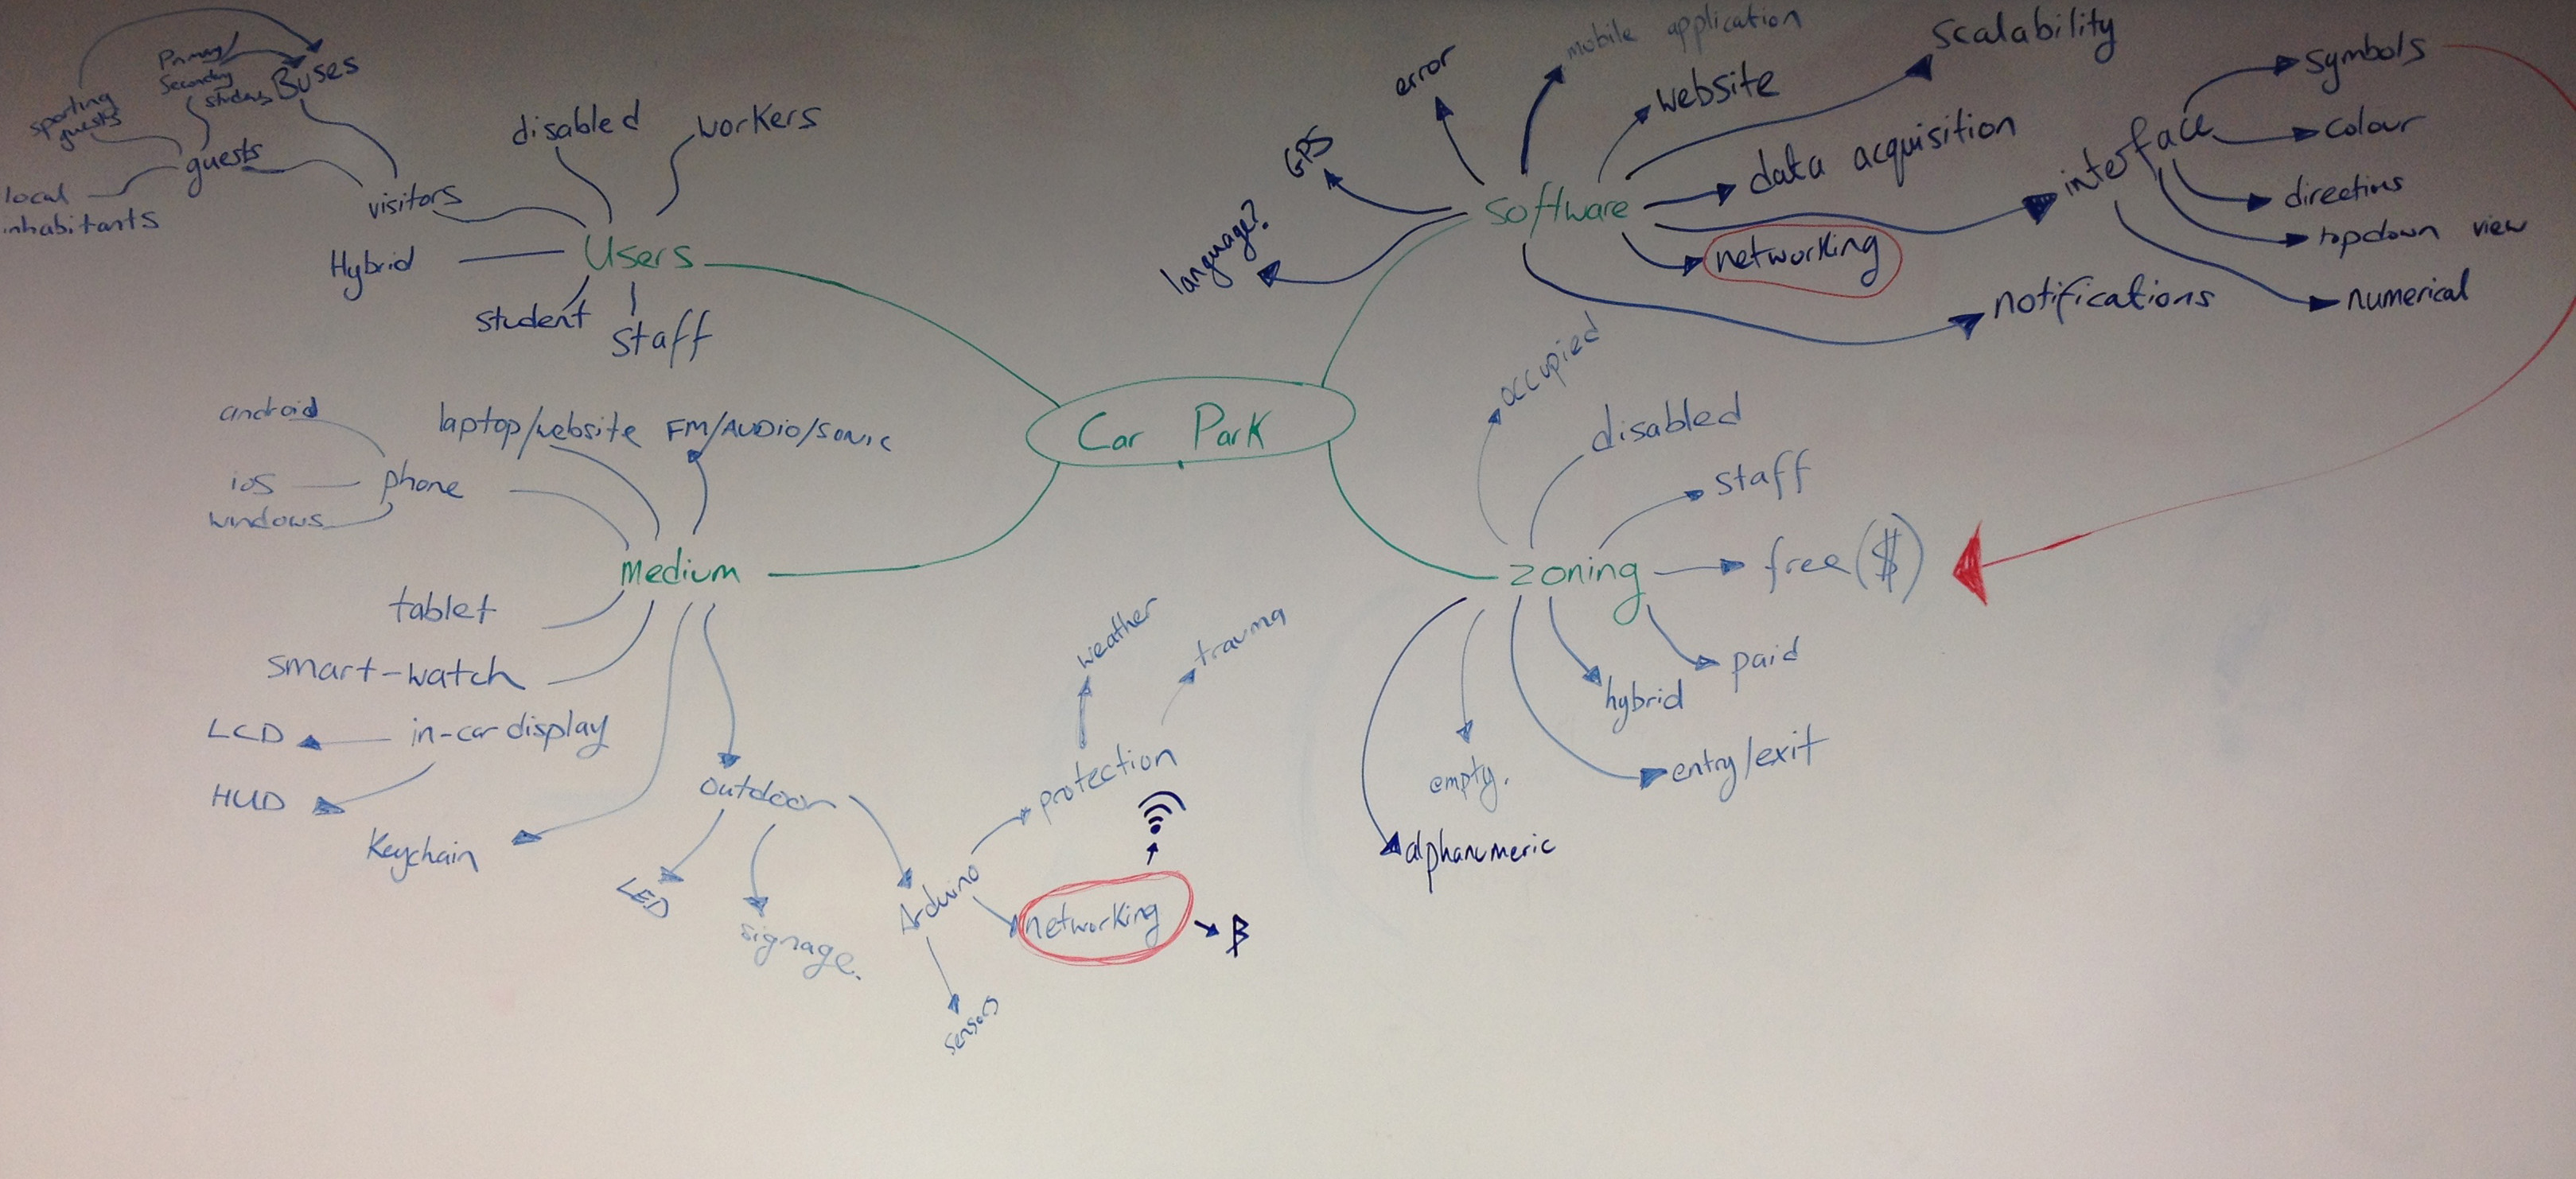 Car Park
Users
disabled
workers
visitors
Buses
guests
Primary/
Secondary
students
sporting
guests
local
inhabitants
Hybrid
student
staff
Software
language?
GPS
error
mobile application
website
scalability
data acquisition
interface
symbols
colour
directins
topdown view
numerical
networking
notifications
Medium
phone
android
ios
windows
laptop/website
FM/AUDIO/SONIC
tablet
smart-watch
in-car display
LCD
HUD
Keychain
outdoor
LED
signage.
Arduino
protection
weather
trauma
networking
sensors
zoning
occupied
disabled
staff
free ($)
paid
hybrid
entry/exit
empty.
alphanumeric